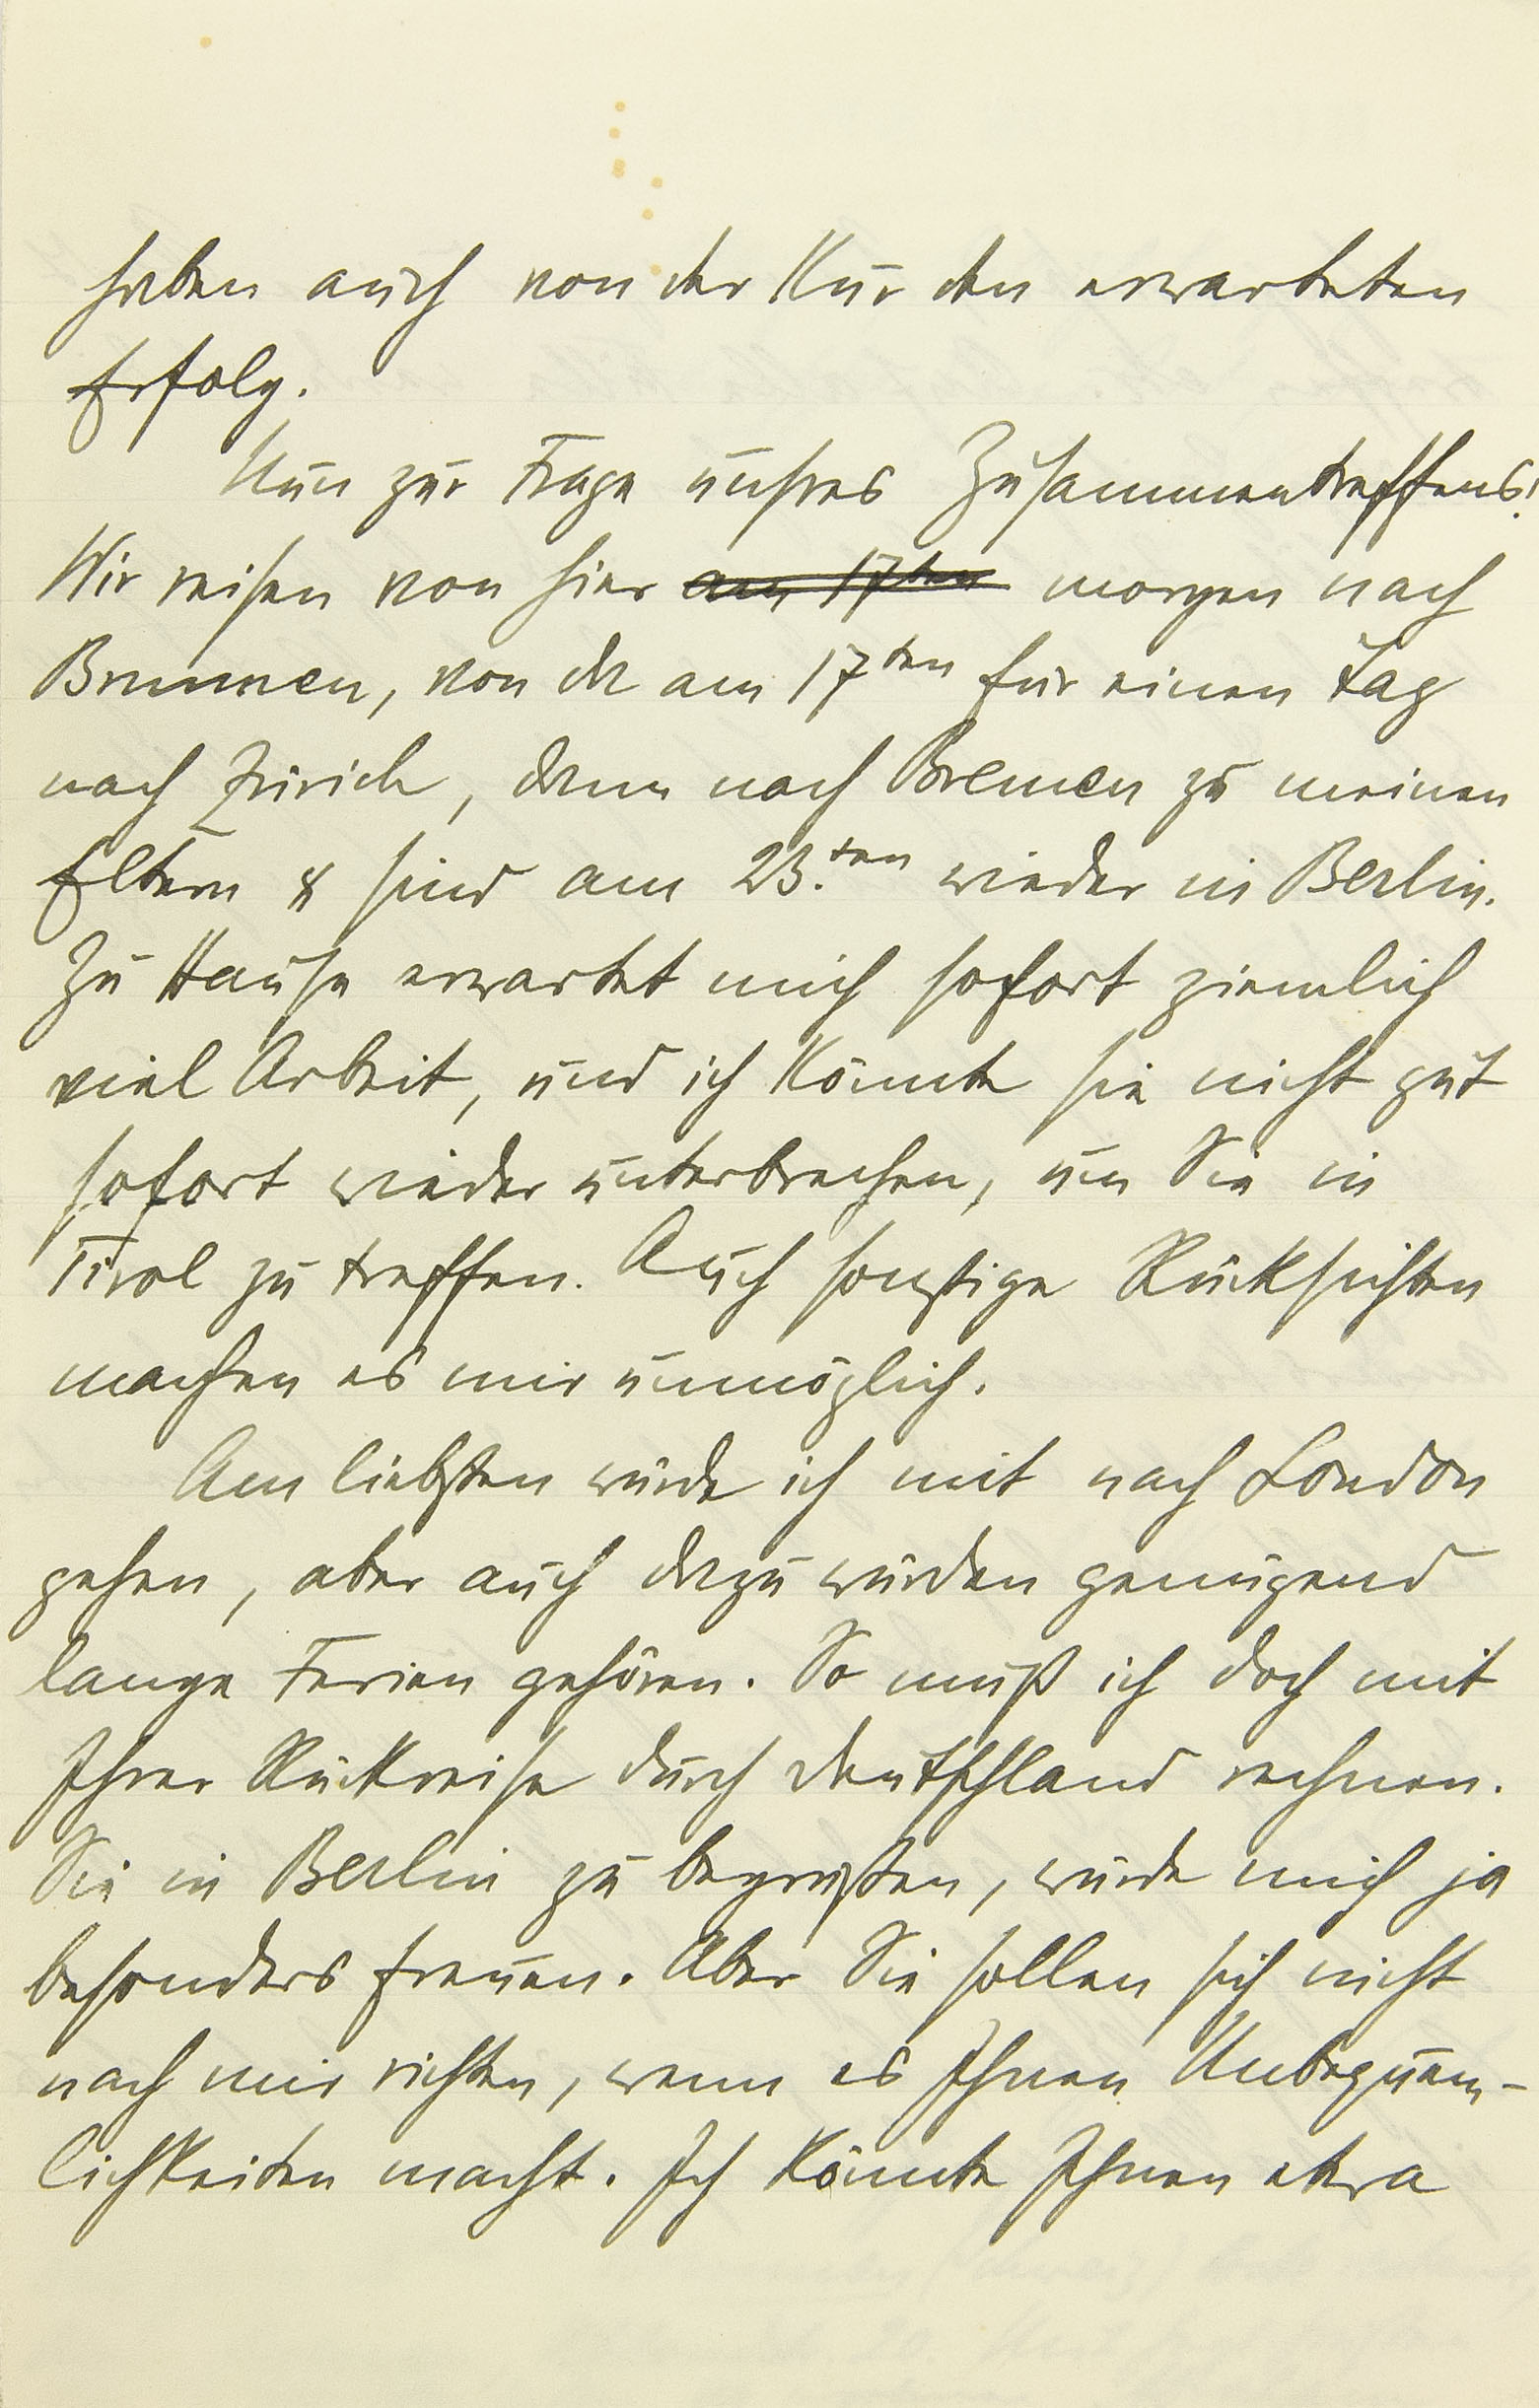 haben auch von der Kur den erwarteten
Erfolg.
Nun zur Frage unsres Zusammentreffens!
Wir reisen von hier am 17ten morgen nach
Brunnen, von da am 17ten für einen Tag
nach Zürich, dann nach Bremen zu meinen
Eltern & sind am 23.ten wieder in Berlin.
Zu Hause erwartet mich sofort ziemlich
viel Arbeit, und ich könnte sie nicht gut
sofort wieder unterbrechen, um Sie in
Tirol zu treffen. Auch sonstige Rücksichten
machen es mir unmöglich.
Am liebsten würde ich mit nach London
gehen, aber auch dazu würden genügend
lange Ferien gehören. So muß ich doch mit
Ihrer Rückreise durch Deutschland rechnen.
Sie in Berlin zu begrüßen, würde mich ja
besonders freuen. Aber Sie sollen sich nicht
nach mir richten, wenn es Ihnen Unbequem-
lichkeiten macht. Ich könnte Ihnen etwa